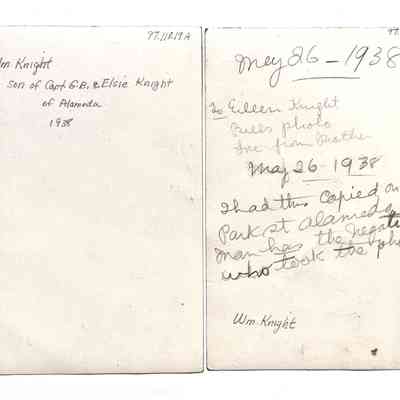 97.118.19A
Wm Knight
son of Capt G.B. & Elsie Knight
of Alameda
1938
97
May 26 - 1938
To Eileen Knight
Bills photo
from Mother
May 26 - 1938
I had this Copied on
Park st Alameda
man has the negati
who took the pho
Wm. Knight